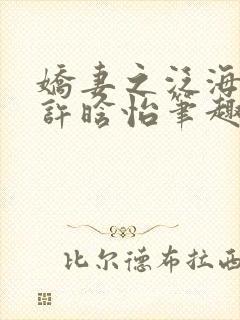 嬌妻之泛海
許晗怡筆趣
比尔德布拉西